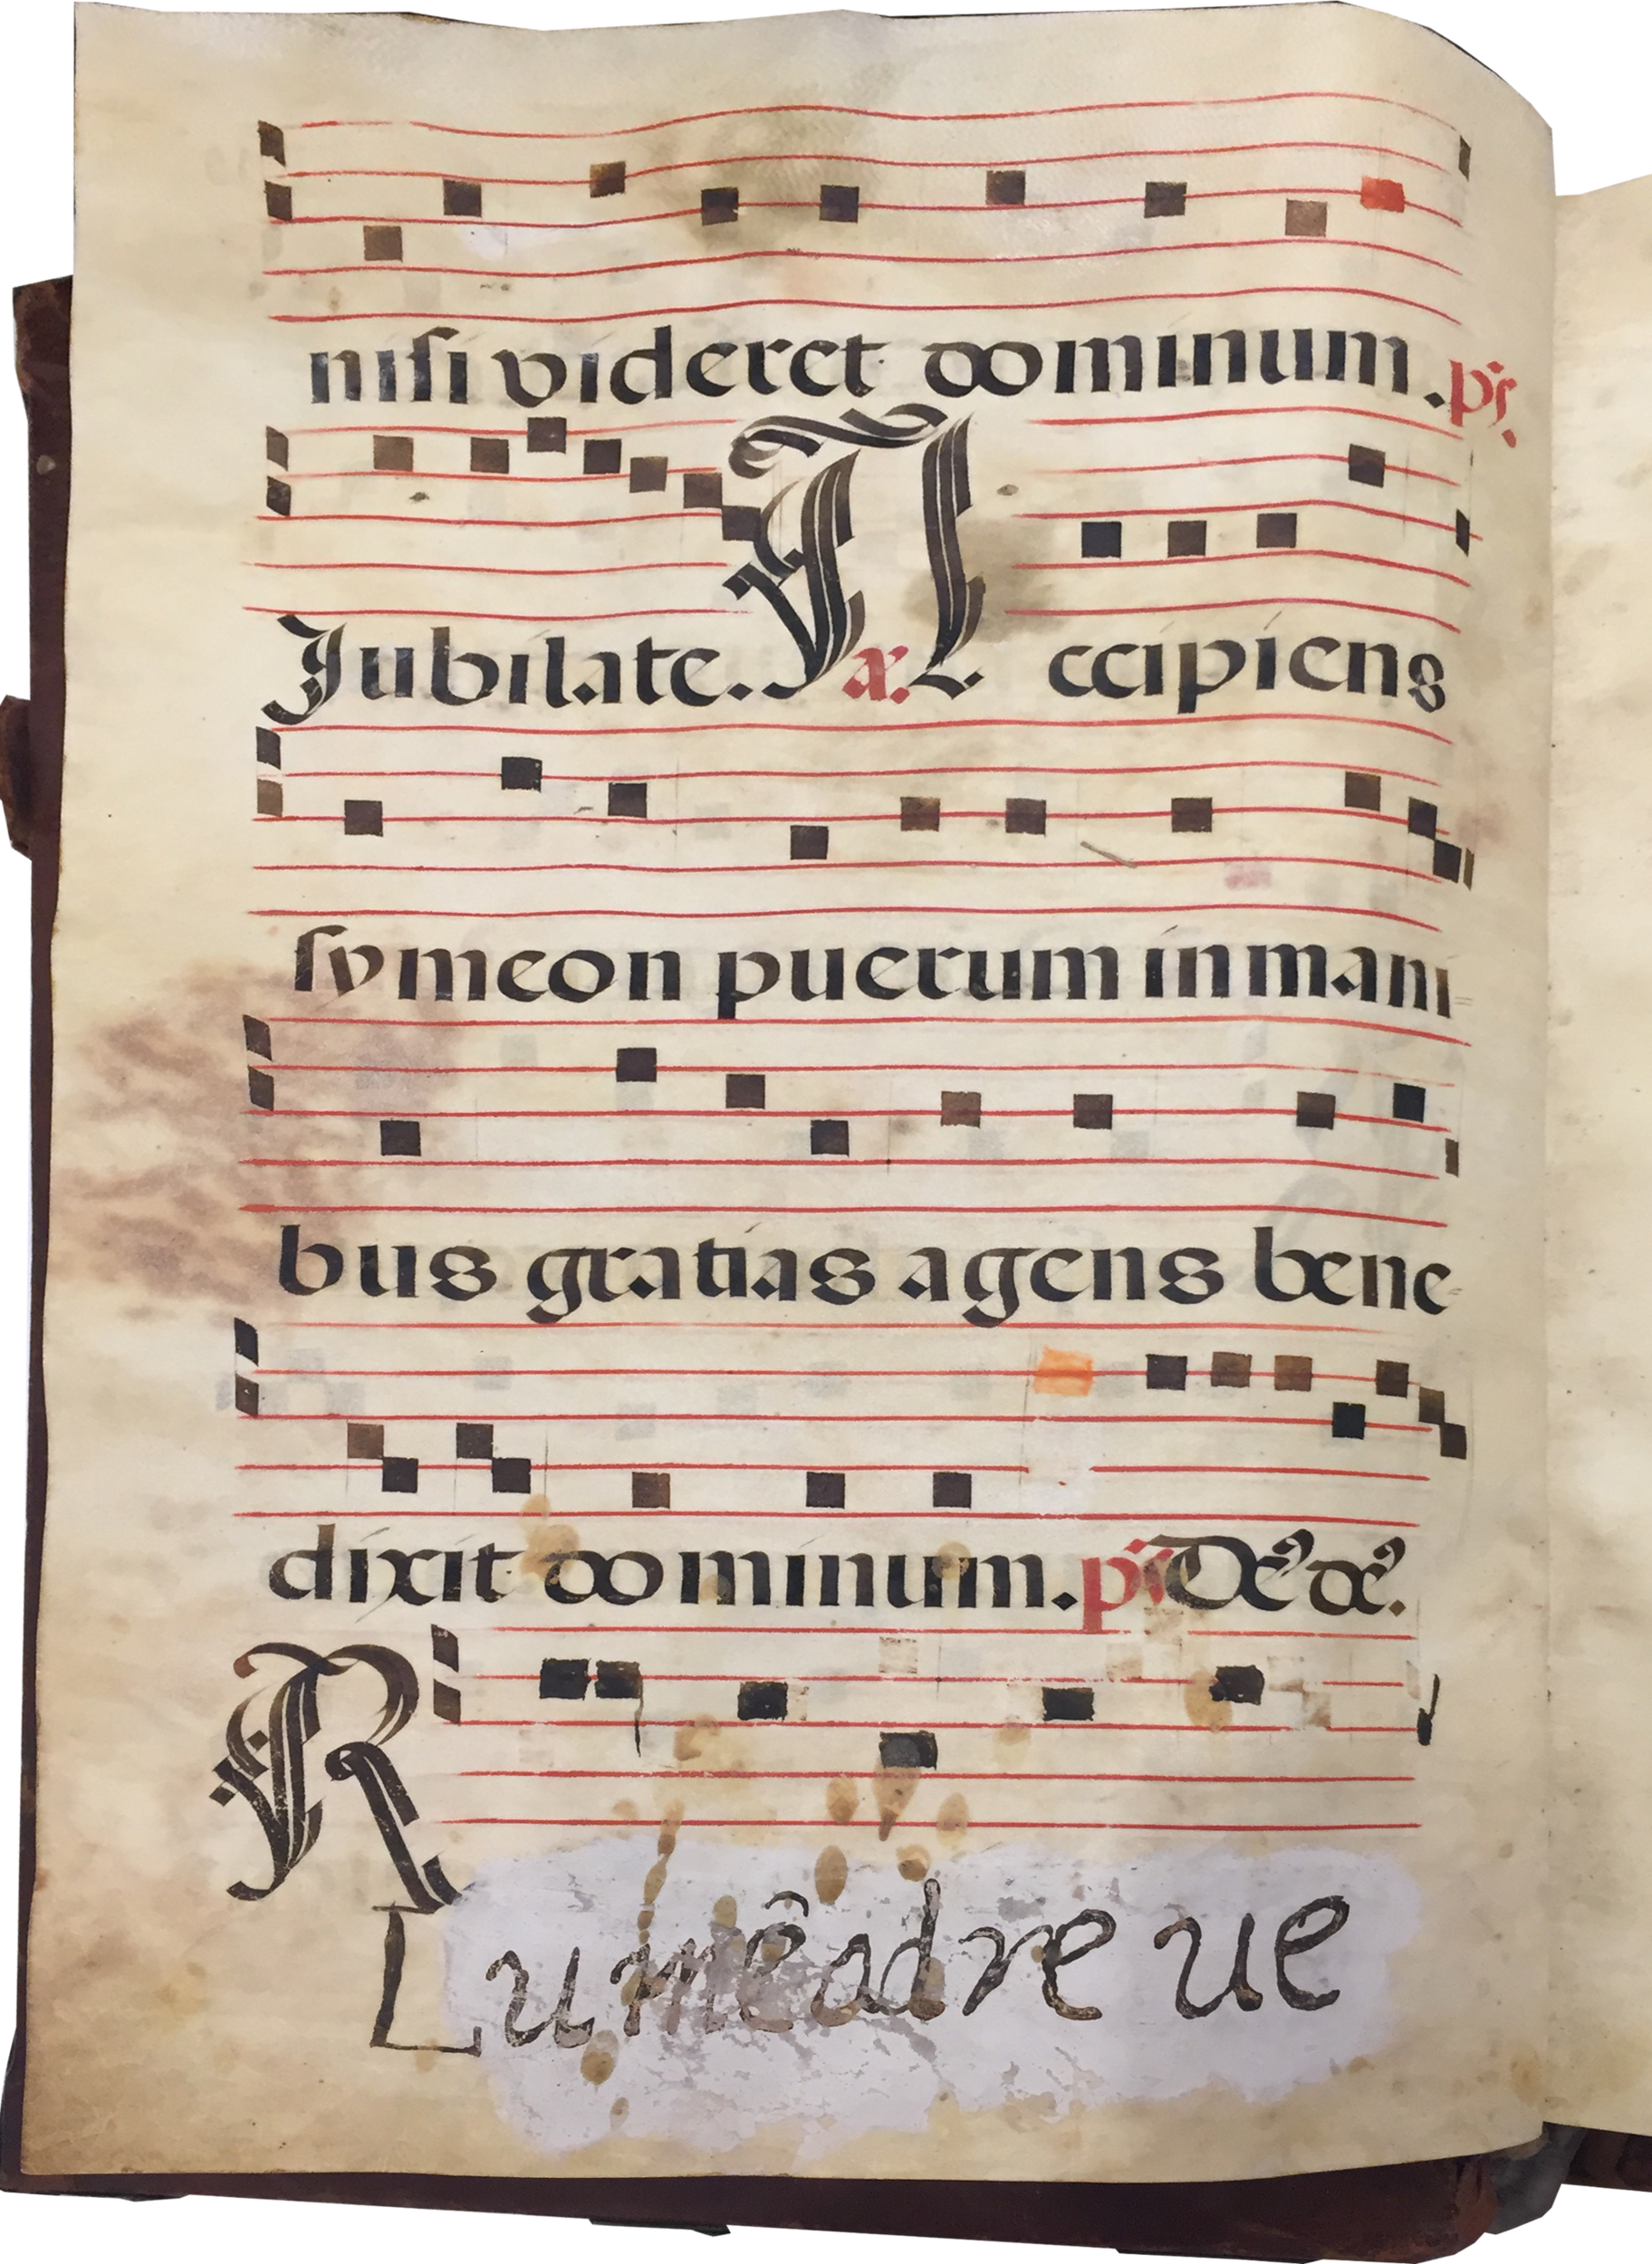 nisi videret dominum. ps.
Jubilate. a. Accipiens
symeon puerum in mani-
bus gratias agens bene-
dixit dominum. ps De⁹ de⁹.
R
Lumê adre ue